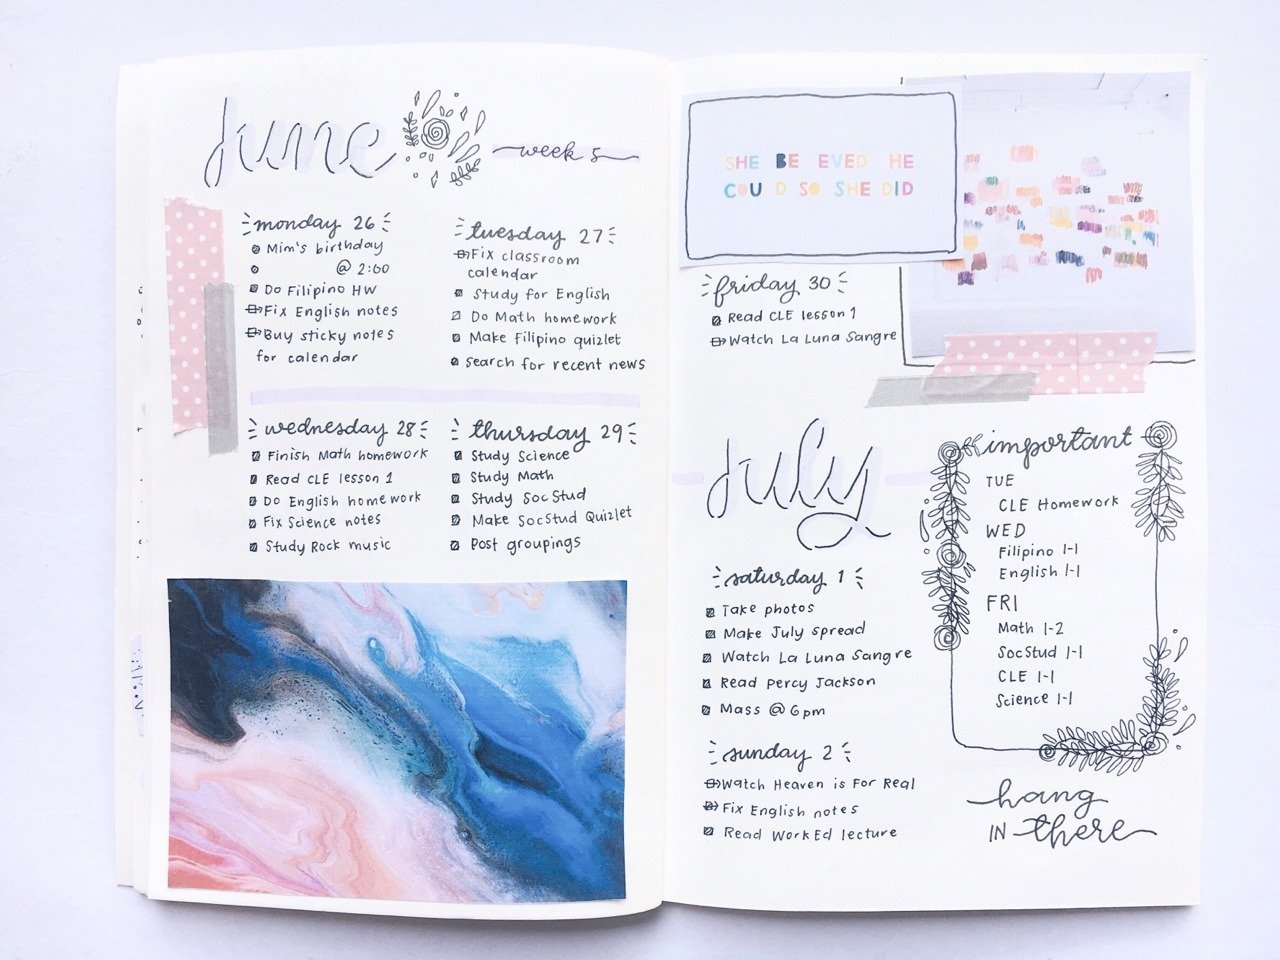 June
week 5
monday 26
Mim's birthday
@ 2:00
Do Filipino HW
Fix English notes
Buy sticky notes
for calendar
tuesday 27
Fix classroom
calendar
Study for English
Do Math homework
Make Filipino quizlet
Search for recent news
wednesday 28
Finish Math homework
Read CLE lesson 1
Do English homework
Fix Science notes
Study Rock music
thursday 29
Study Science
Study Math
Study SocStud
Make SocStud Quizlet
Post groupings
SHE BE EVED HE
COU D SO SHE DID
friday 30
Read CLE lesson 1
Watch La Luna Sangre
July
saturday 1
Take photos
Make July spread
Watch La Luna Sangre
Read Percy Jackson
Mass @ 6pm
sunday 2
Watch Heaven is For Real
Fix English notes
Read WorkEd lecture
important
TUE
CLE Homework
WED
Filipino 1-1
English 1-1
FRI
Math 1-2
SocStud 1-1
CLE 1-1
Science 1-1
hang
IN there